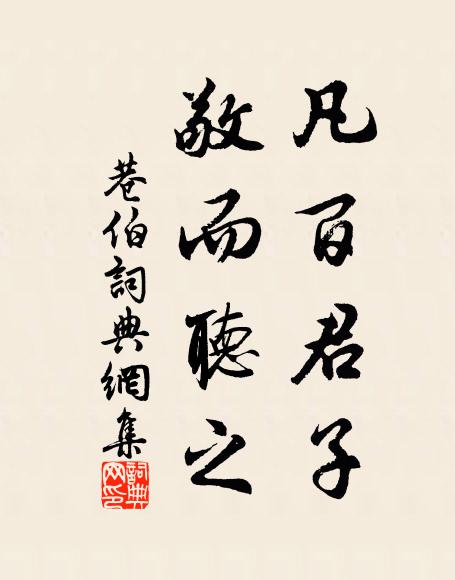 凡百君子
敬而聽之
巷伯詞典網集
詞典网印